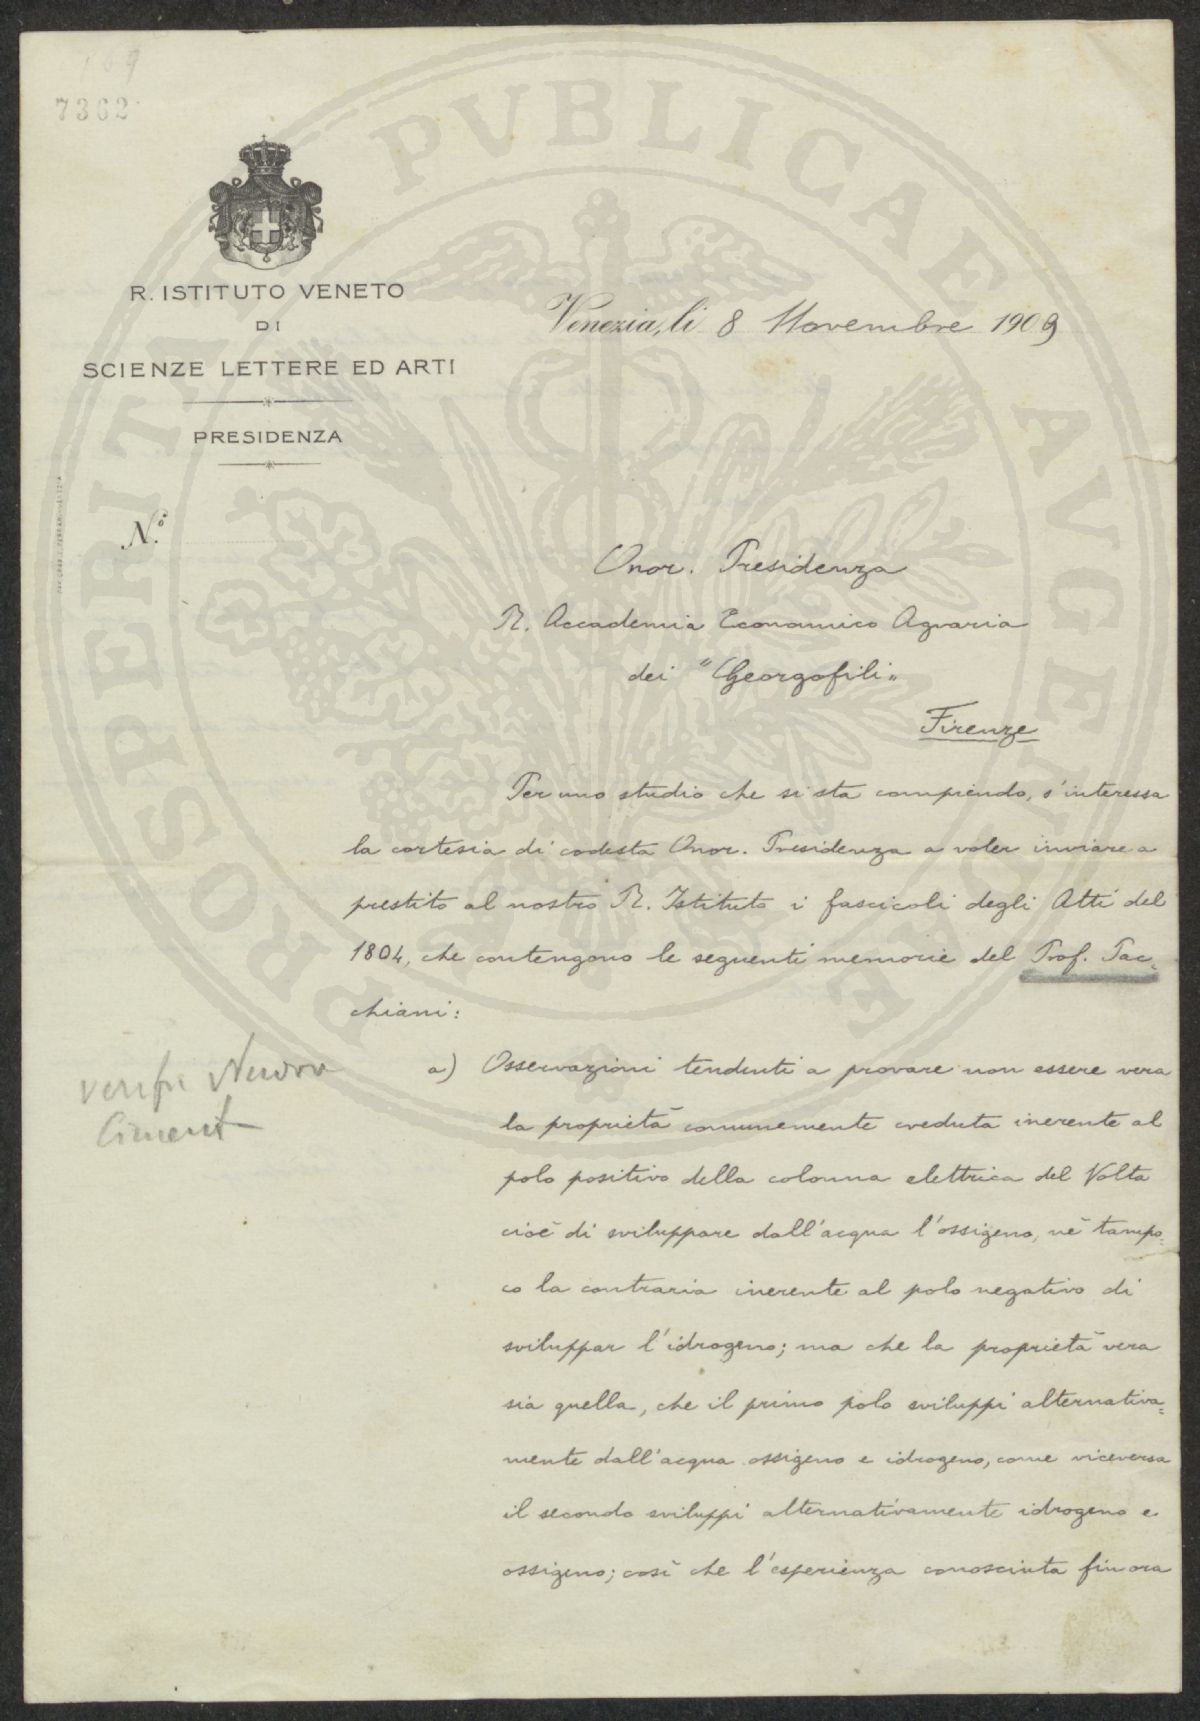 7362
R. ISTITUTO VENETO
DI
SCIENZE LETTERE ED ARTI
PRESIDENZA
N.º
Venezia, li 8 Novembre 1909
Onor. Presidenza
R. Accademia Economico Agraria
dei "Georgofili"
Firenze
Per uno studio che si sta compiendo, s'interessa
la cortesia di codesta Onor. Presidenza a voler inviare a
prestito al nostro R. Istituto i fascicoli degli Atti del
1804, che contengono le seguenti memorie del Prof. Pac-
chiani:
a) Osservazioni tendenti a provare non essere vera
la proprietà comunemente creduta inerente al
polo positivo della colonna elettrica del Volta
cioè di sviluppare dall'acqua l'ossigeno, nè tampo-
co la contraria inerente al polo negativo di
sviluppar l'idrogeno; ma che la proprietà vera
sia quella, che il primo polo sviluppi alternativa=
mente dall'acqua ossigeno e idrogeno, come viceversa
il secondo sviluppi alternativamente idrogeno e
ossigeno; così che l'esperienza conosciuta fin ora
Nuovo
Ciment
PROSPERITATI PUBLICAE AUGENDAE